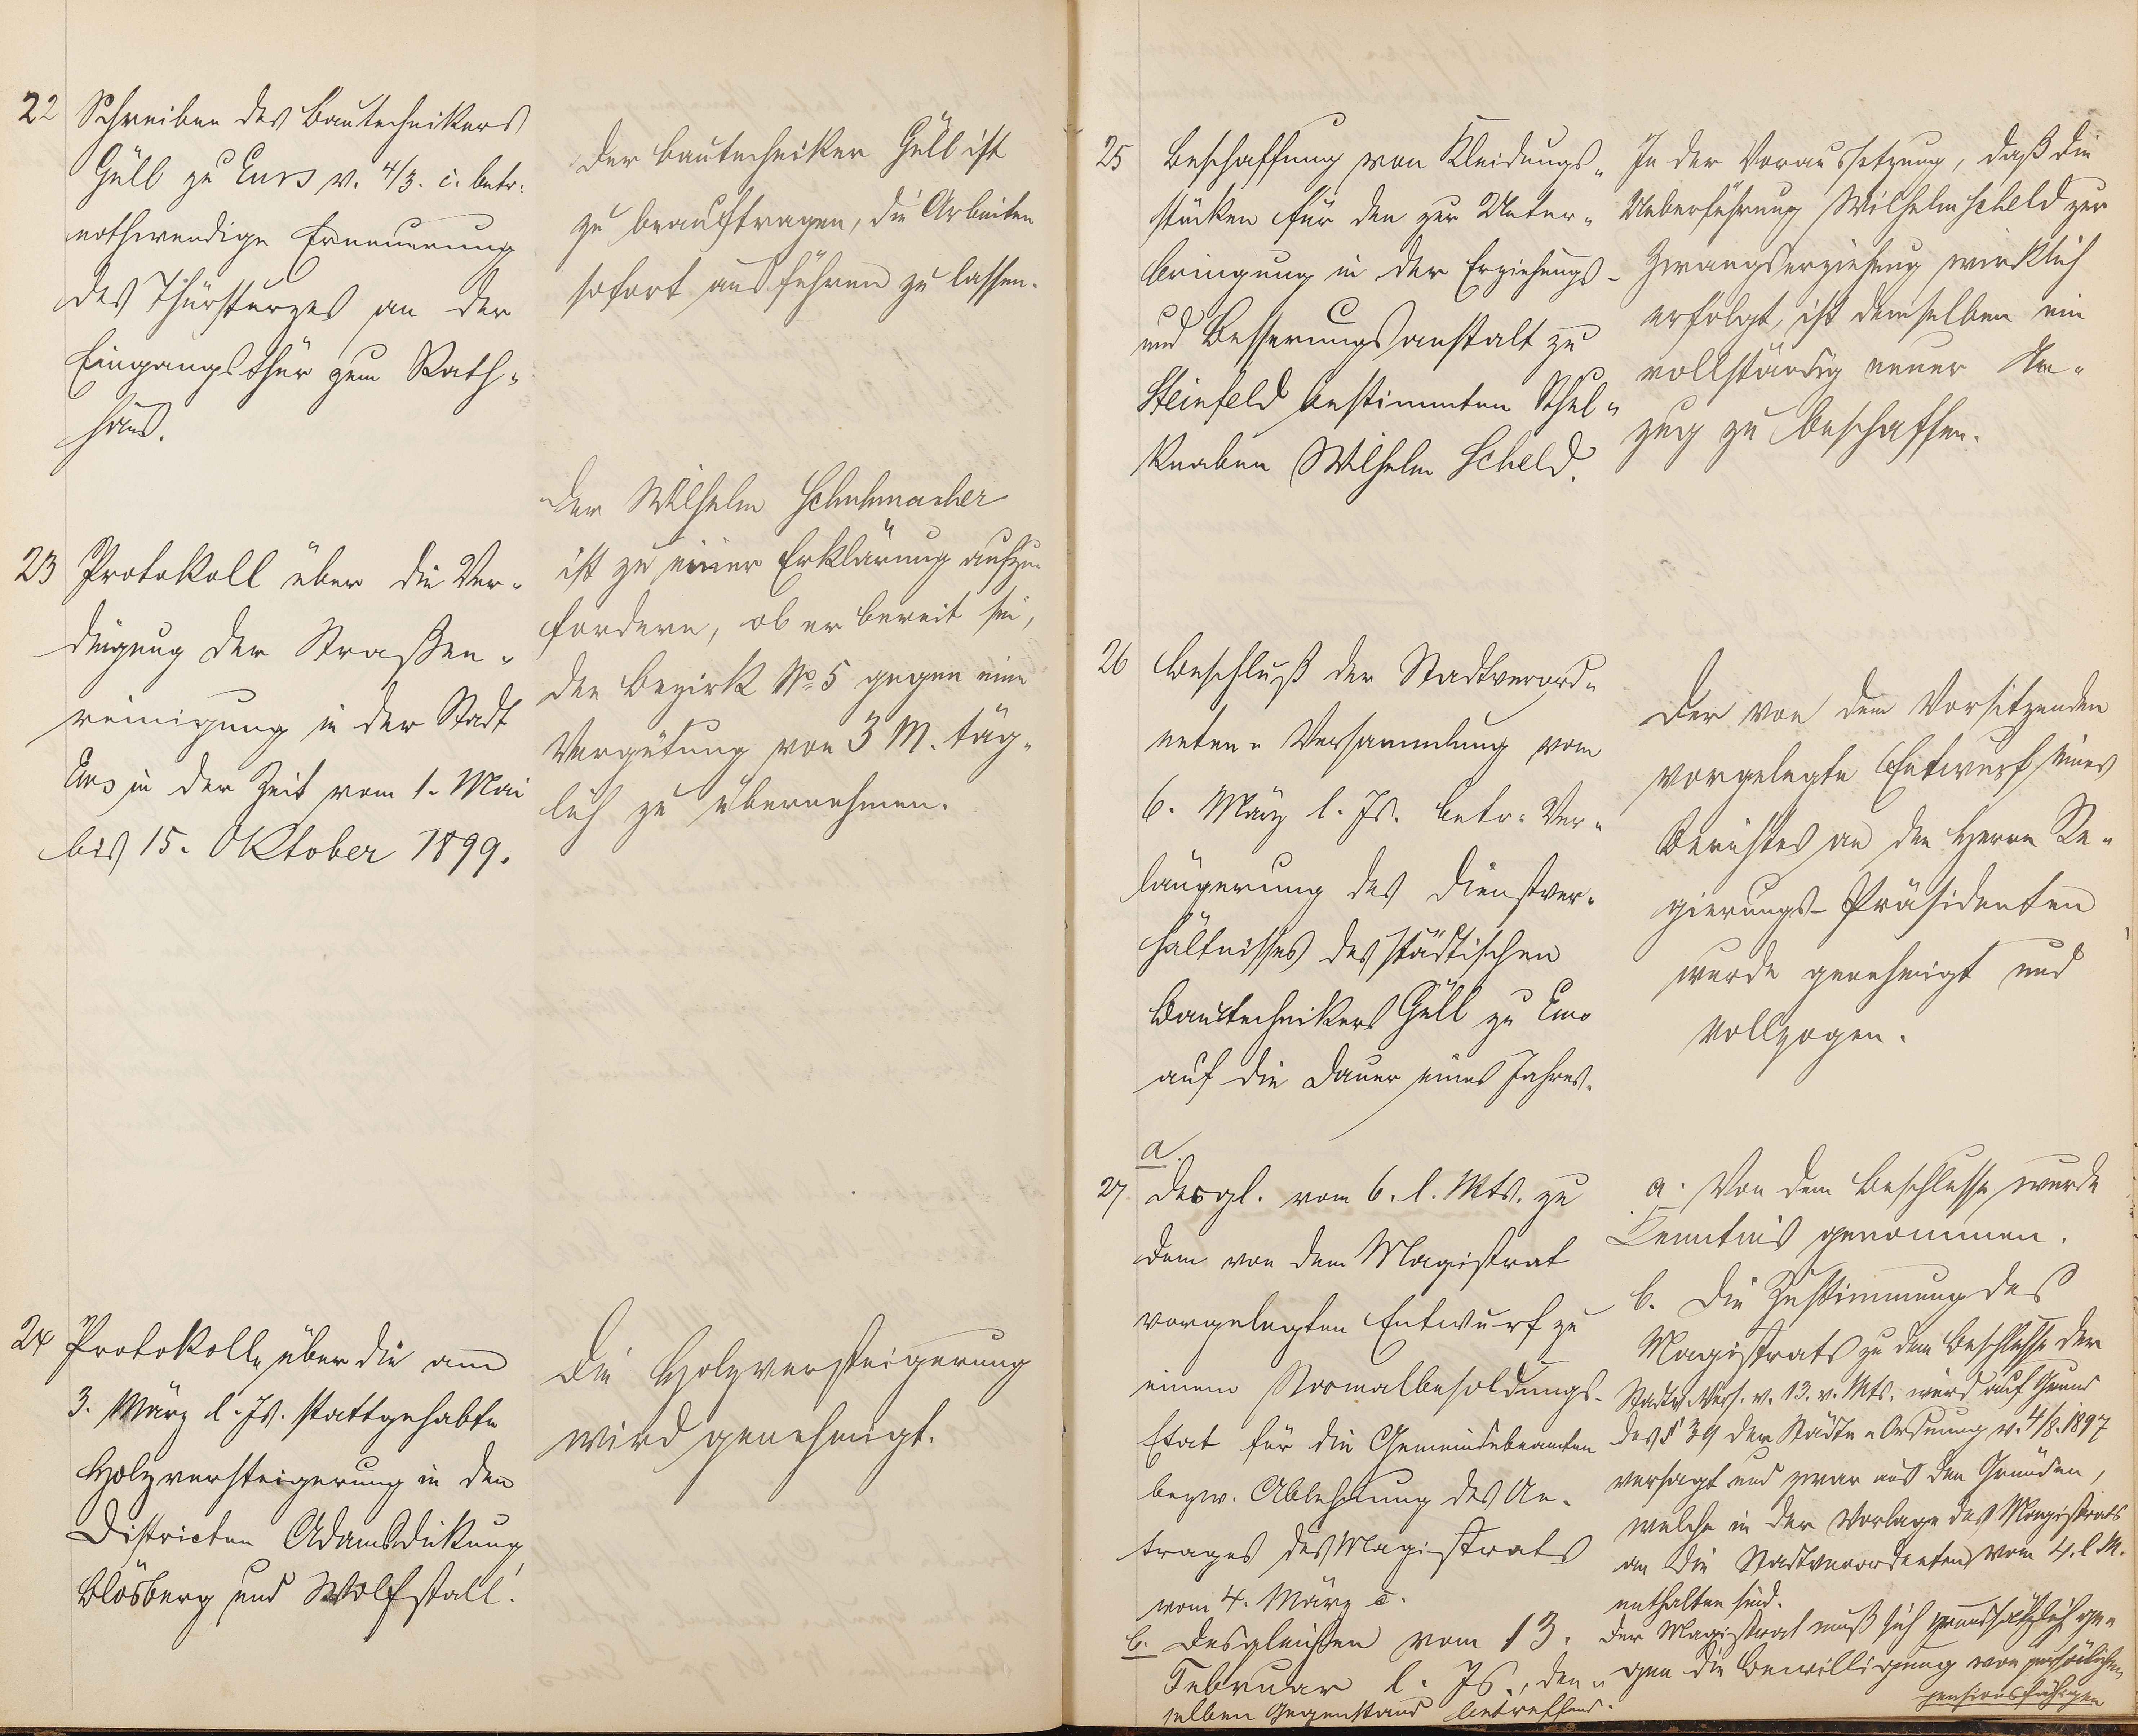 22 Schreiben des Bautechnikers
Güll zu Ems v. 4/3. c. betr.
nothwendige Erneuerung
des Thürsturzes an der
Eingangsthür zum Rath-
haus.
Der Bautechniker Güll ist
zu beauftragen, die Arbeiten
sofort ausführen zu lassen.
23 Protokoll über die Ver-
dingung der Straßen-
reinigung in der Stadt
Ems in der Zeit vom 1. Mai
bis 15. Oktober 1899.
Der Wilhelm Schuhmacher
ist zu einer Erklärung aufzu-
fordern, ob er bereit sei,
den Bezirk No 5 gegen eine
Vergütung von 3 M. täg-
lich zu übernehmen.
24 Protokolle über die am
3. März l. Js. stattgehabte
Holzversteigerung in den
Districten Adamsdickung
Blösberg und Wolfstall.
Die Holzversteigerung
wird genehmigt.
25 Beschaffung von Kleidungs-
stücken für den zur Unter-
bringung in der Erziehungs-
und Besserungsanstalt zu
Steinfeld bestimmten Schul-
knaben Wilhelm Scheld.
In der Voraussetzung, daß die
Ueberführung Wilhelm Scheld zur
Zwangserziehung wirklich
erfolgt, ist demselben ein
vollständig neuer An-
zug zu beschaffen.
26 Beschluß der Stadtverord-
neten-Versammlung vom
6. März l. Js. betr. Ver-
längerung des Dienstver-
hältnisses des städtischen
Bautechnikers Güll zu Ems
auf die Dauer eines Jahres.
Der von dem Vorsitzenden
vorgelegte Entwurf eines
Berichtes an den Herrn Re-
gierungs-Präsidenten
wurde genehmigt und
vollzogen.
a.
27 desgl. vom 6. l. Mts. zu
dem von dem Magistrat
vorgelegten Entwurf zu
einem Normalbesoldungs-
Etat für die Gemeindebeamten
bezw. Ablehnung des An-
trages des Magistrats
vom 4. März c.
b. Desgleichen vom 13.
Februar l. Js., den-
selben Gegenstand betreffend.
a. Von dem Beschlusse wurde
Kenntnis genommen.
b. Die Zustimmung des
Magistrats zu dem Beschlusse der
Stadtv. Vers. v. 13. v. Mts. wird auf Grund
des § 39 der Städte-Ordnung v. 4/8. 1897
versagt und zwar aus den Gründen,
welche in der Vorlage des Magistrats
an die Stadtverordneten vom 4. l. M.
enthalten sind.
Der Magistrat muß sich grundsätzlich ge-
gen die Bewilligung von persönlichen
pensionsfähigen